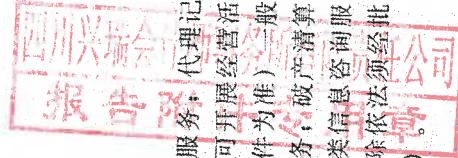 四川兴瑞会计师事务所有限责任公司
报告附件专用章
服务；代理记
可开展经营活
件为准）一般
务；破产清算
类信息咨询服
除依法须经批
）。